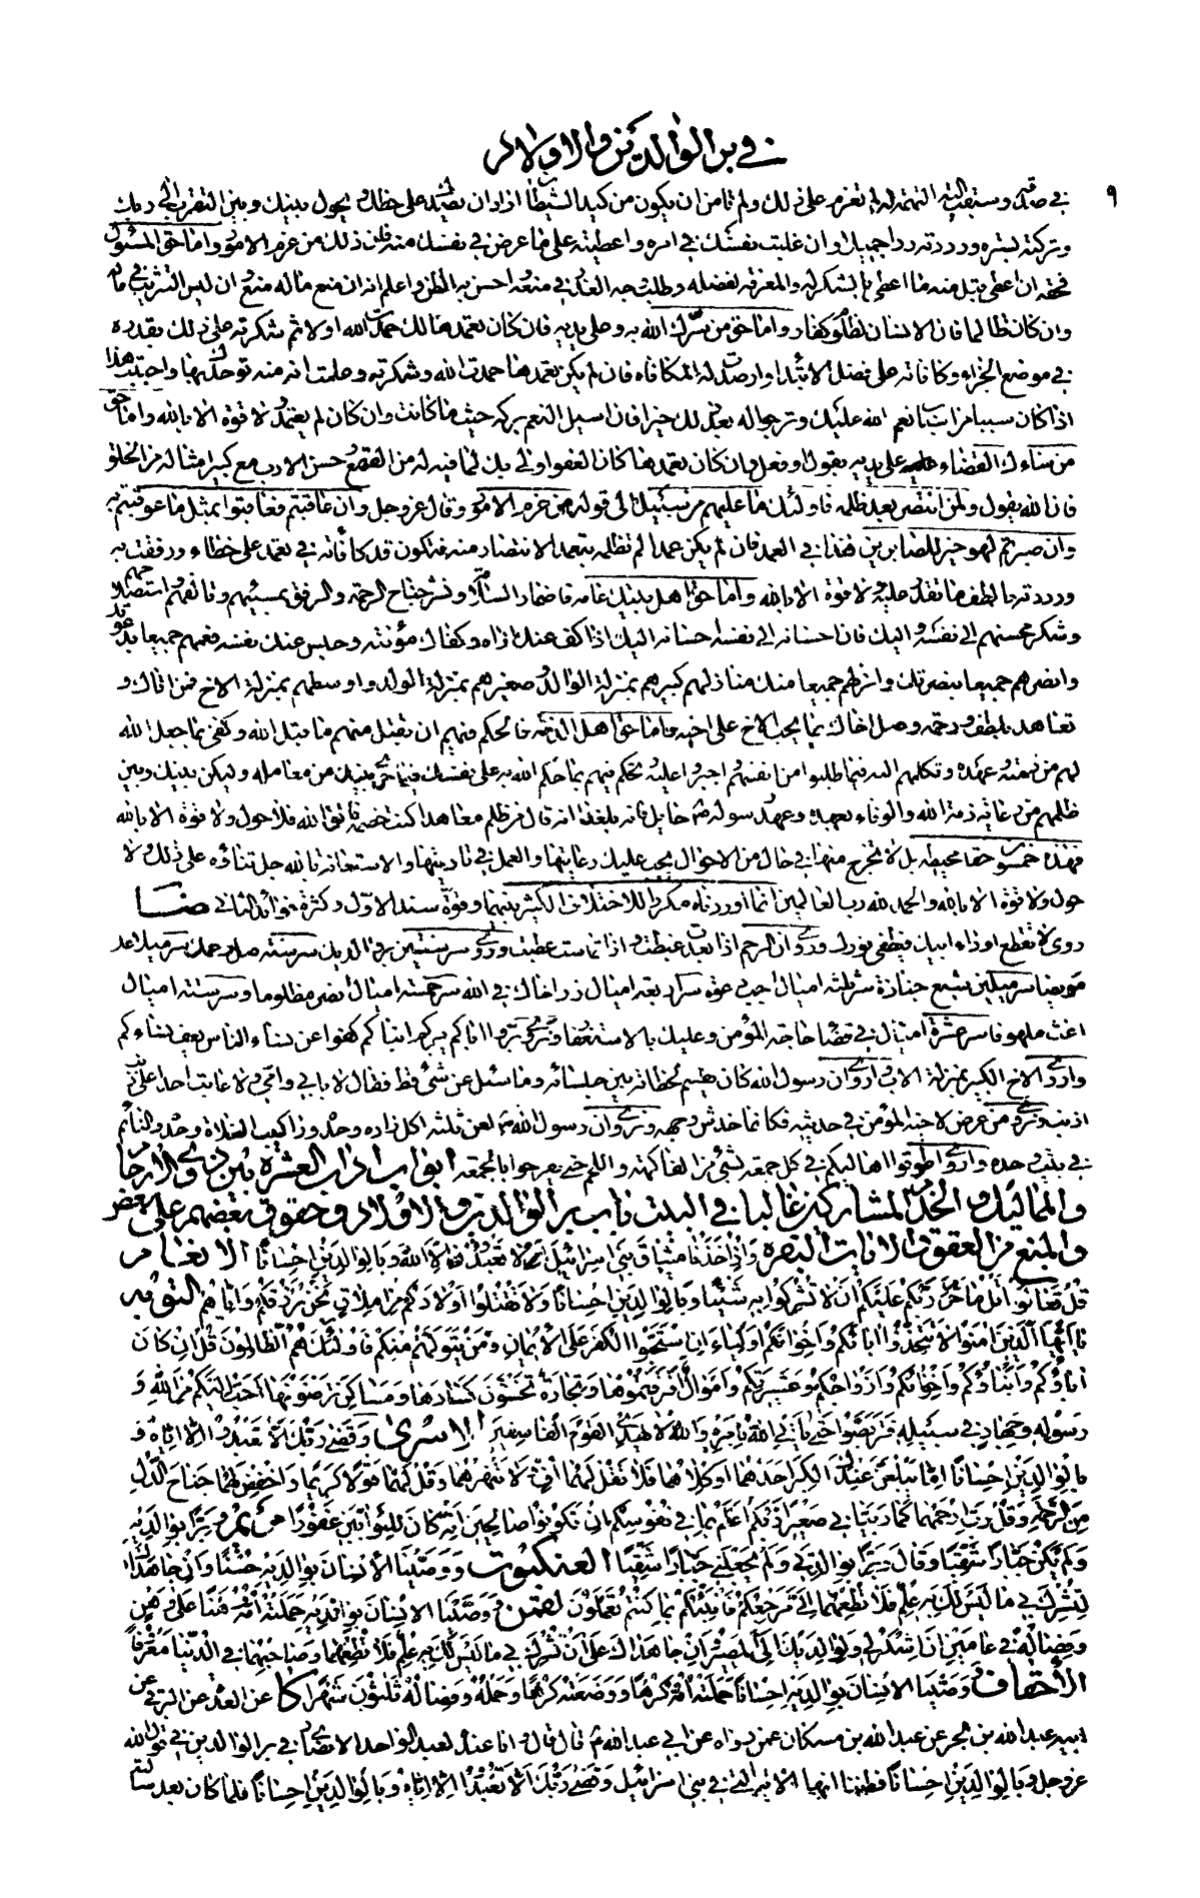 في بر الوالدين والاولاد
٩
في صدقه وسبقت اليه التهمة له لم تعزم على ذلك ولم تامن ان يكون من كيد الشيطان اراد ان يصدك على حظك ويحول بينك وبين التقرب الى ربك
وتركته بستره ورددته ردا جميلا وان غلبت نفسك في امره واعطيته على ما عرض في نفسك منه فان ذلك من عزم الامور واما حق المسئول
فحقه ان اعطى قبل منه ما اعطى بالشكر له والمعرفة لفضله وطلب وجه العذر في منعه احسن به الظن واعلم انه ان منع ماله منع ان ليس التثريب في ماله
وان كان ظالما فان الانسان لظلوم كفار واما حق من سرك الله به وعلى يديه فان كان تعمدها لك حمدت الله اولا ثم شكرته على ذلك بقدره
في موضع الجزاء وكافاته على فضل الابتداء وارصدت له المكافاة فان لم يكن تعمدها حمدت الله وشكرته وعلمت انه منه توحدك بها واحببت هذا
اذا كان سببا من اسباب نعم الله عليك وترجو له بعد ذلك خيرا فان اسباب النعم بركة حيث ما كانت وان كان لم يعتمد ولا قوة الا بالله واما حق
من ساءك القضاء على يديه بقول او فعل فان كان تعمدها كان العفو اولى بك لما فيه له من القمع وحسن الادب مع كبير امثاله من الخلق
فان الله يقول ولمن انتصر بعد ظلمه فاولئك ما عليهم من سبيل الى قوله من عزم الامور وقال عز وجل وان عاقبتم فعاقبوا بمثل ما عوقبتم به
وان صبرتم لهو خير للصابرين هذا في العمد فان لم يكن عمدا لم تظلمه بتعمد الانتصار منه فتكون قد كافأته في تعمد على خطاء ورفقت به
ورددته بالطف ما تقدر عليه ولا قوة الا بالله واما حق اهل بيتك عامة فاضمار السلامة ونشر جناح الرحمة والرفق بمسيئهم وتألفهم واستصلاحهم
وشكر محسنهم الى نفسه واليك فان احسانه الى نفسه احسانه اليك اذا كف عنك اذاه وكفاك مؤنته وحبس عنك نفسه فعمهم جميعا بدعوتك
وانصرهم جميعا بنصرتك وانزلهم جميعا منك منازلهم كبيرهم بمنزلة الوالد وصغيرهم بمنزلة الولد واوسطهم بمنزلة الاخ فمن اتاك
تعاهد بلطف ورحمة وصل اخاك بما يجب للاخ على اخيه واما حق اهل الذمة فالحكم فيهم ان تقبل منهم ما قبل الله وكفى بما جعل الله
لهم من ذمته وعهده وتكلهم اليه فيما طلبوا من انفسهم واجبروا عليه وتحكم فيهم بما حكم الله به على نفسك فيما جرى بينك من معاملة وليكن بينك وبين
ظلمهم من رعاية ذمة الله والوفاء بعهده وعهد رسوله حائل فانه بلغنا انه قال من ظلم معاهدا كنت خصمه فاتق الله ولا حول ولا قوة الا بالله
فهذه خمسون حقا محيطة بك لا تخرج منها في حال من الاحوال يجب عليك رعايتها والعمل في تاديتها والاستعانة بالله جل ثناؤه على ذلك ولا
حول ولا قوة الا بالله والحمد لله رب العالمين انما اوردناه مكررا للاختلاف الكثير بينهما وقوة سند الاول وكثرة فوائد الثاني
روى لا تقطع اوداء ابيك فيطفى نورك وروى ان الرحم اذا بعدت غبطت واذا تماست عطبت وروى سر سنتين بر والديك سر سنة صل رحمك سر ميلا عد
مريضا سر ميلين شيع جنازة سر ثلثة اميال اجب دعوة سر اربعة اميال زر اخاك في الله سر خمسة اميال انصر مظلوما وسر ستة اميال
اغث ملهوفا سر عشرة اميال في قضاء حاجة المؤمن وعليك بالاستغفار وروى بروا اباكم يبركم ابناءكم كفوا عن نساء الناس يعف نساءكم
واروى الاخ الكبير بمنزلة الاب واروى ان رسول الله كان يقسم لحظاته بين جلسائه وما سئل عن شئ قط فقال لا بابي وامي ولا عاتب احدا على ذنب
اذنب ونروى من عرض لاخيه المؤمن في حديثه فكانما خدش وجهه ونروى ان رسول الله لعن ثلثة اكل زاده وحده وراكب الفلاة وحده والنائم
في بيت وحده واروى اطرقوا اهاليكم في كل جمعة بشئ من الفاكهة واللحم حتى يفرحوا بالجمعة ابواب اداب العشرة بين ذوي الارحام
والمماليك والخدم المشاركين غالبا في البيت باب بر الوالدين والاولاد وحقوق بعضهم على بعض
والمنع من العقوق الايات البقرة وَإِذْ أَخَذْنَا مِيثَاقَ بَنِي إِسْرَائِيلَ لَا تَعْبُدُونَ إِلَّا اللَّهَ وَبِالْوَالِدَيْنِ إِحْسَانًا الانعام
قُلْ تَعَالَوْا أَتْلُ مَا حَرَّمَ رَبُّكُمْ عَلَيْكُمْ أَلَّا تُشْرِكُوا بِهِ شَيْئًا وَبِالْوَالِدَيْنِ إِحْسَانًا وَلَا تَقْتُلُوا أَوْلَادَكُمْ مِنْ إِمْلَاقٍ نَحْنُ نَرْزُقُكُمْ وَإِيَّاهُمْ التوبة
يَا أَيُّهَا الَّذِينَ آمَنُوا لَا تَتَّخِذُوا آبَاءَكُمْ وَإِخْوَانَكُمْ أَوْلِيَاءَ إِنِ اسْتَحَبُّوا الْكُفْرَ عَلَى الْإِيمَانِ وَمَنْ يَتَوَلَّهُمْ مِنْكُمْ فَأُولَئِكَ هُمُ الظَّالِمُونَ قُلْ إِنْ كَانَ
آبَاؤُكُمْ وَأَبْنَاؤُكُمْ وَإِخْوَانُكُمْ وَأَزْوَاجُكُمْ وَعَشِيرَتُكُمْ وَأَمْوَالٌ اقْتَرَفْتُمُوهَا وَتِجَارَةٌ تَخْشَوْنَ كَسَادَهَا وَمَسَاكِنُ تَرْضَوْنَهَا أَحَبَّ إِلَيْكُمْ مِنَ اللَّهِ وَ
رَسُولِهِ وَجِهَادٍ فِي سَبِيلِهِ فَتَرَبَّصُوا حَتَّى يَأْتِيَ اللَّهُ بِأَمْرِهِ وَاللَّهُ لَا يَهْدِي الْقَوْمَ الْفَاسِقِينَ الاسرى وَقَضَى رَبُّكَ أَلَّا تَعْبُدُوا إِلَّا إِيَّاهُ وَ
بِالْوَالِدَيْنِ إِحْسَانًا إِمَّا يَبْلُغَنَّ عِنْدَكَ الْكِبَرَ أَحَدُهُمَا أَوْ كِلَاهُمَا فَلَا تَقُلْ لَهُمَا أُفٍّ وَلَا تَنْهَرْهُمَا وَقُلْ لَهُمَا قَوْلًا كَرِيمًا وَاخْفِضْ لَهُمَا جَنَاحَ الذُّلِّ
مِنَ الرَّحْمَةِ وَقُلْ رَبِّ ارْحَمْهُمَا كَمَا رَبَّيَانِي صَغِيرًا رَبُّكُمْ أَعْلَمُ بِمَا فِي نُفُوسِكُمْ إِنْ تَكُونُوا صَالِحِينَ فَإِنَّهُ كَانَ لِلْأَوَّابِينَ غَفُورًا مريم وَبَرًّا بِوَالِدَيْهِ
وَلَمْ يَكُنْ جَبَّارًا شَقِيًّا وَقَالَ وَبَرًّا بِوَالِدَتِي وَلَمْ يَجْعَلْنِي جَبَّارًا شَقِيًّا العنكبوت وَوَصَّيْنَا الْإِنْسَانَ بِوَالِدَيْهِ حُسْنًا وَإِنْ جَاهَدَاكَ
لِتُشْرِكَ بِي مَا لَيْسَ لَكَ بِهِ عِلْمٌ فَلَا تُطِعْهُمَا إِلَيَّ مَرْجِعُكُمْ فَأُنَبِّئُكُمْ بِمَا كُنْتُمْ تَعْمَلُونَ لقمن وَوَصَّيْنَا الْإِنْسَانَ بِوَالِدَيْهِ حَمَلَتْهُ أُمُّهُ وَهْنًا عَلَى وَهْنٍ
وَفِصَالُهُ فِي عَامَيْنِ أَنِ اشْكُرْ لِي وَلِوَالِدَيْكَ إِلَيَّ الْمَصِيرُ وَإِنْ جَاهَدَاكَ عَلَى أَنْ تُشْرِكَ بِي مَا لَيْسَ لَكَ بِهِ عِلْمٌ فَلَا تُطِعْهُمَا وَصَاحِبْهُمَا فِي الدُّنْيَا مَعْرُوفًا
الأحقاف وَوَصَّيْنَا الْإِنْسَانَ بِوَالِدَيْهِ إِحْسَانًا حَمَلَتْهُ أُمُّهُ كُرْهًا وَوَضَعَتْهُ كُرْهًا وَحَمْلُهُ وَفِصَالُهُ ثَلَاثُونَ شَهْرًا كا عن العدة عن البرقي عن
ابيه عن عبد الله بن بحر عن عبد الله بن مسكان عمن رواه عن ابي عبد الله ع قال قال وانا عنده لعبد الواحد الانصاري في بر الوالدين في قول الله
عز وجل وَبِالْوَالِدَيْنِ إِحْسَانًا فظننا انها الاية التي في بني اسرائيل وَقَضَى رَبُّكَ أَلَّا تَعْبُدُوا إِلَّا إِيَّاهُ وَبِالْوَالِدَيْنِ إِحْسَانًا فلما كان بعد سألته